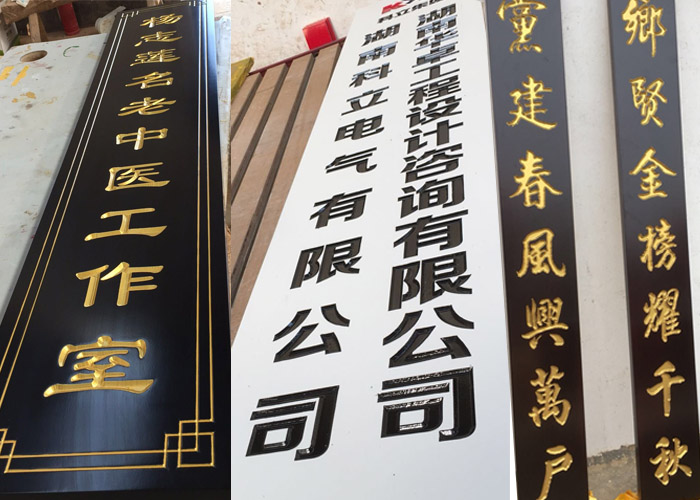 杨志莲名老中医工作室
湖南科立电气有限公司
湖南华卓工程设计咨询有限公司
黨建春風興萬戶
鄉賢金榜耀千秋